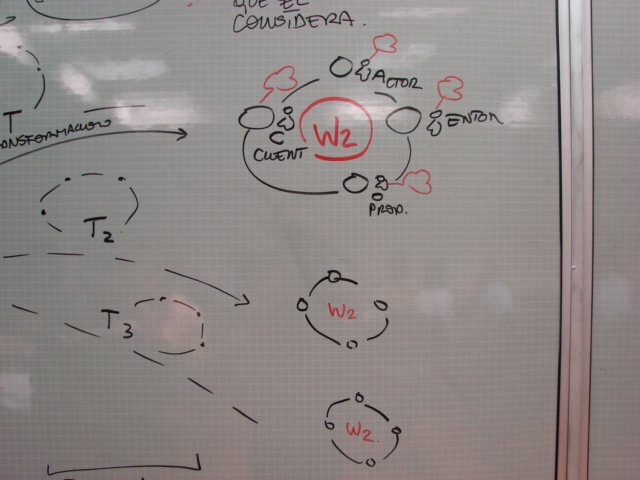 QUE EL
CONSIDERA.
ACTOR
T
W2
ENTOR
CLIENT
PROP.
T2
W2
T3
W2.